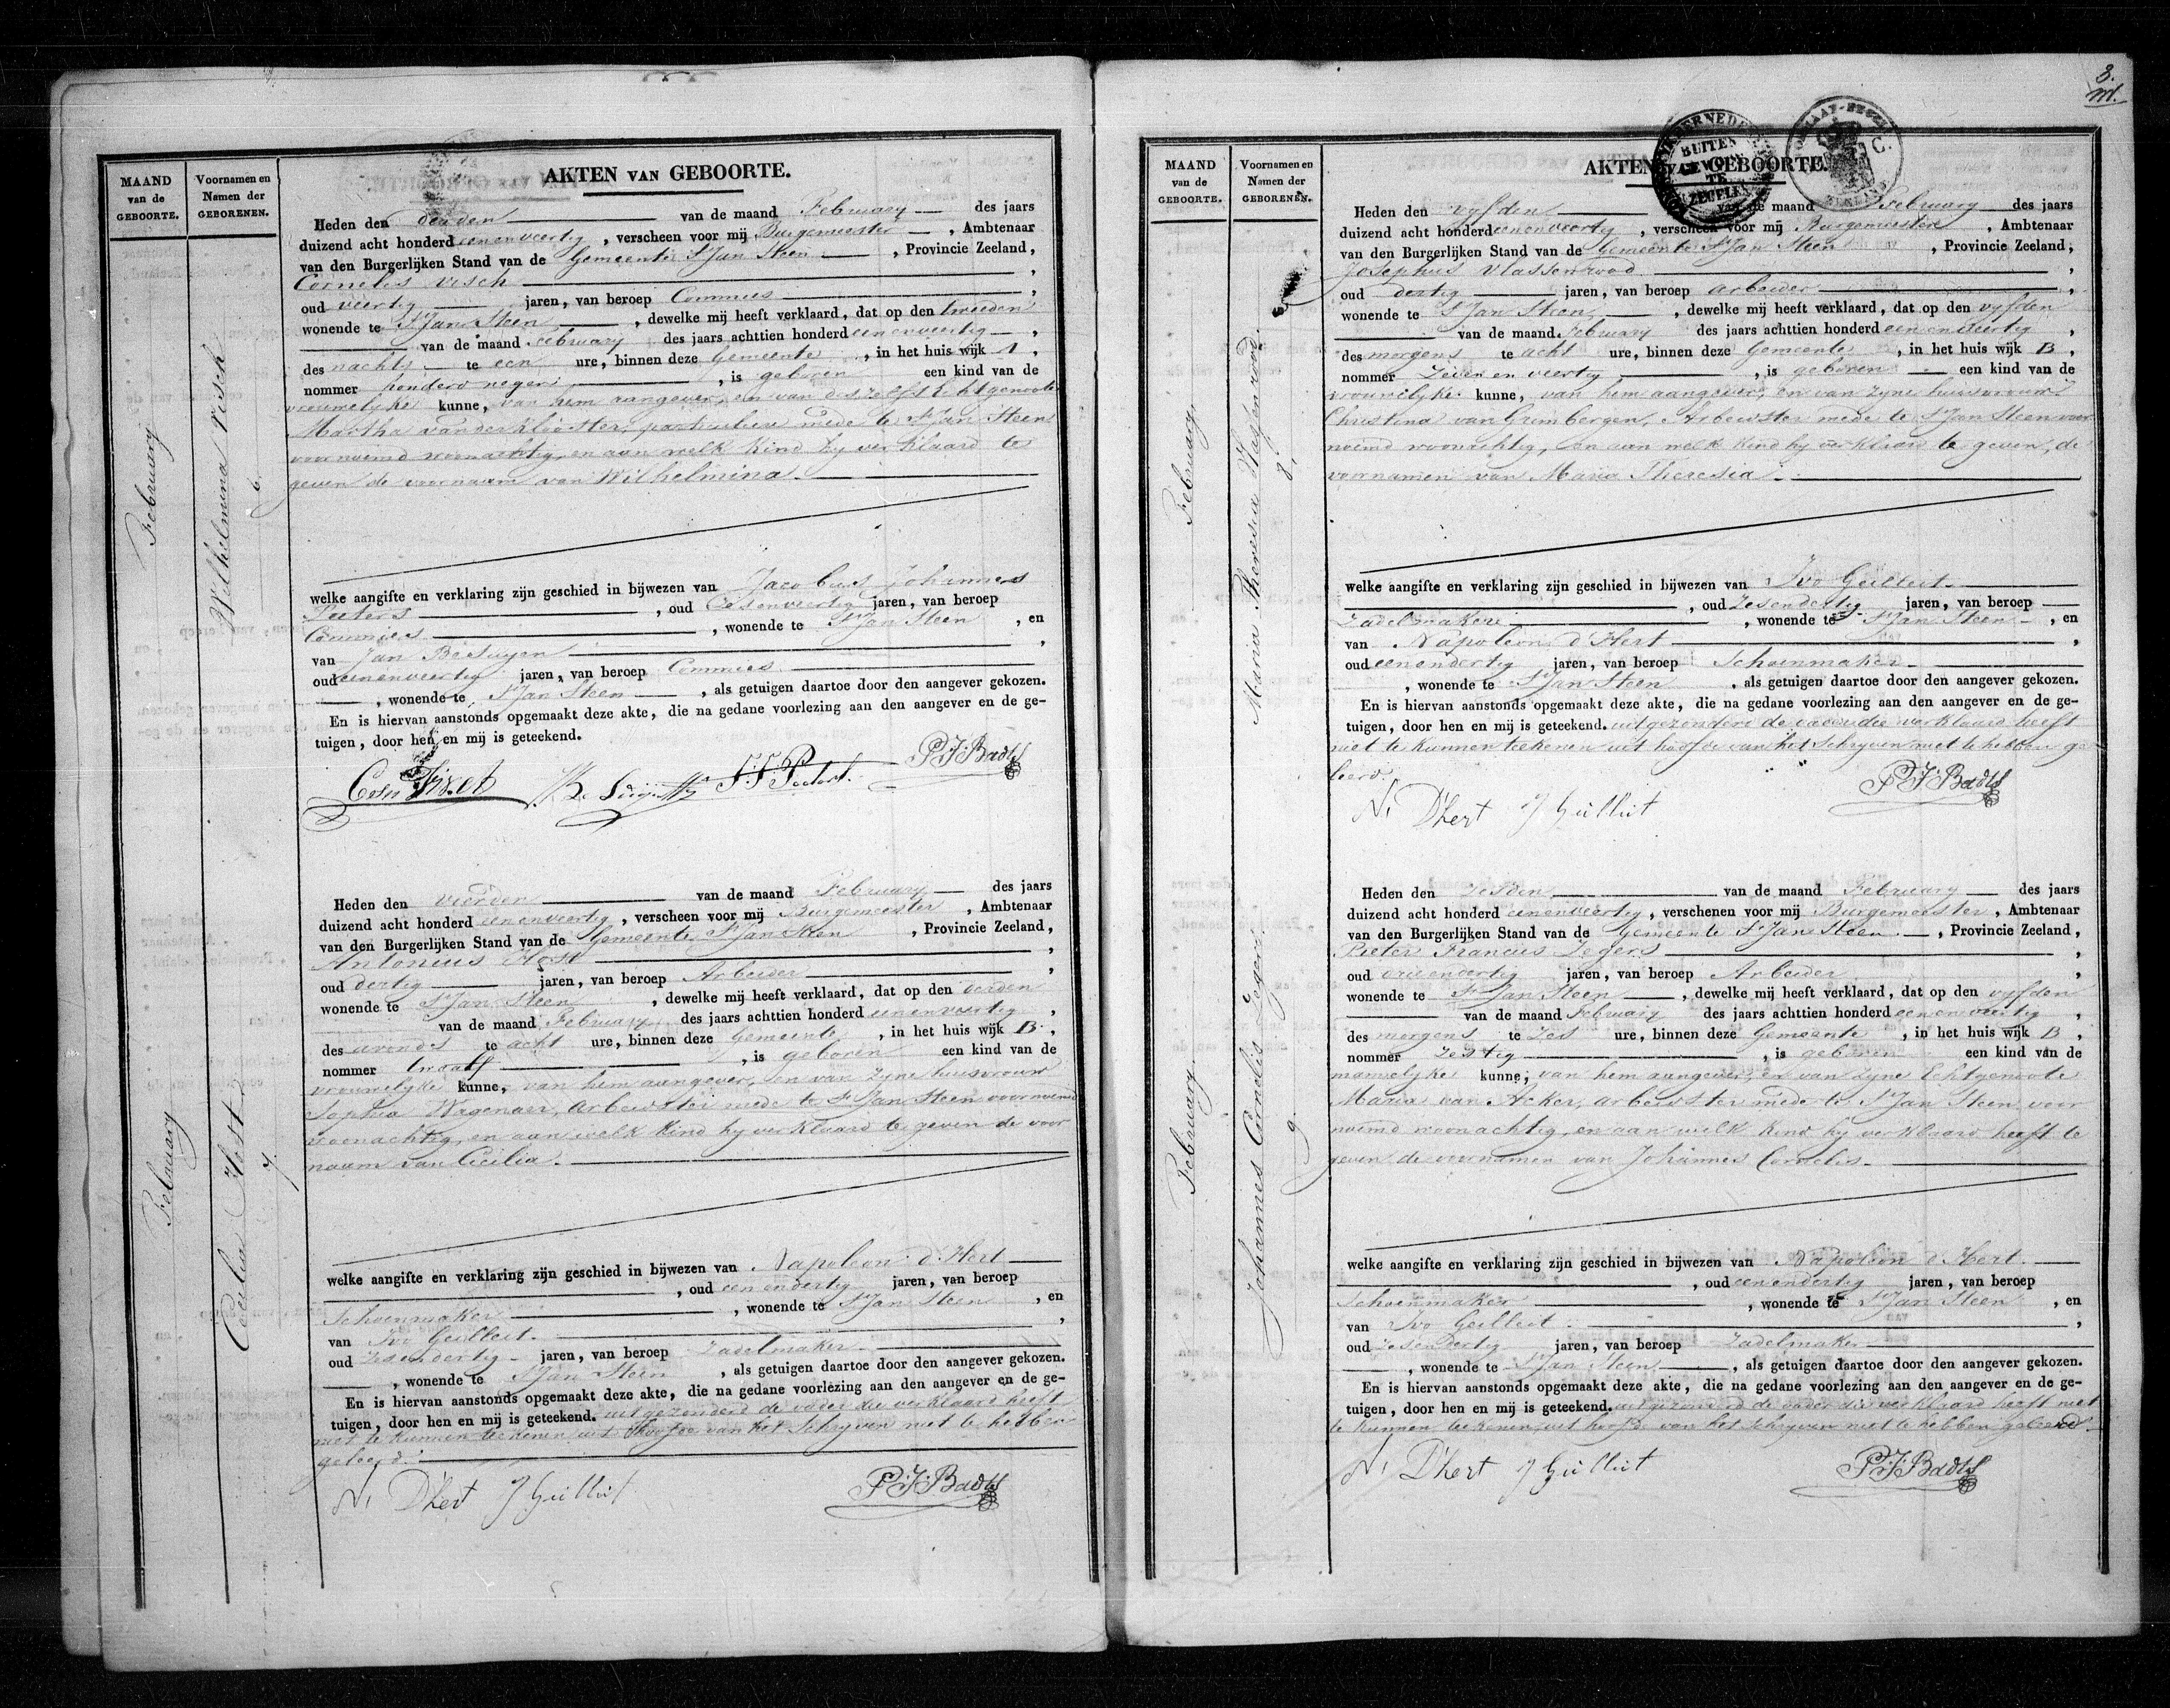 AKTEN VAN GEBOORTE.
MAAND
van de
GEBOORTE.
Voornamen en
Namen der
GEBORENEN.
February
Wilhelmina Visch
6.
Heden den derden van de maand February des jaars
duizend acht honderd eenenveertig, verscheen voor mij Burgemeester, Ambtenaar
van den Burgerlijken Stand van de Gemeente St Jan Steen, Provincie Zeeland,
Cornelis Visch
oud veertig jaren, van beroep Commies,
wonende te St Jan Steen, dewelke mij heeft verklaard, dat op den tweeden
van de maand February des jaars achttien honderd eenenveertig,
des nachts te een ure, binnen deze Gemeente, in het huis wijk A,
nommer honderd negen, is geboren een kind van de
vrouwelyke kunne, van hem aangever, en van deszelfs Echtgenoote
Martha van der Klooster, particuliere mede te St Jan Steen
voornoemd woonachtig, en aan welk kind hy verklaard te
geven de voornaam van Wilhelmina.
welke aangifte en verklaring zijn geschied in bijwezen van Jacobus Johannes
Peeters, oud Zesenveertig jaren, van beroep
Commies, wonende te St Jan Steen, en
van Jan
oud eenenveertig jaren, van beroep Commies
, wonende te St Jan Steen, als getuigen daartoe door den aangever gekozen.
En is hiervan aanstonds opgemaakt deze akte, die na gedane voorlezing aan den aangever en de ge-
tuigen, door hen en mij is geteekend.
P. J. Badts
February
Cecilia Host
7.
Heden den vierden van de maand February des jaars
duizend acht honderd eenenveertig, verscheen voor mij Burgemeester, Ambtenaar
van den Burgerlijken Stand van de Gemeente St Jan Steen, Provincie Zeeland,
Antonius Host,
oud dertig jaren, van beroep Arbeider,
wonende te St Jan Steen, dewelke mij heeft verklaard, dat op den derden
van de maand February des jaars achttien honderd eenenveertig,
des avonds te acht ure, binnen deze Gemeente, in het huis wijk B,
nommer twaalf, is geboren een kind van de
vrouwelyke kunne, van hem aangever, en van zyne huisvrouw
Sophia Wagenaer, Arbeidster mede te St Jan Steen voornoemd
woonachtig, en aan welk kind hy verklaard te geven de voor
naam van Cicilia.
welke aangifte en verklaring zijn geschied in bijwezen van Napoleon d'Hert
, oud eenendertig jaren, van beroep
Schoenmaker, wonende te St Jan Steen, en
van Ivo Geilleit,
oud Zesendertig jaren, van beroep Zadelmaker
, wonende te St Jan Steen, als getuigen daartoe door den aangever gekozen.
En is hiervan aanstonds opgemaakt deze akte, die na gedane voorlezing aan den aangever en de ge-
tuigen, door hen en mij is geteekend. uitgezonderd de vader die verklaard heeft
niet te kunnen teekenen uit hoofde van het Schryven niet te hebben
geleerd.
N. D'hert J Guilliit P. J. Badts
3.
AKTEN VAN GEBOORTE.
BUITEN
GEWOON
TE
ZEGELEN
MAAND
van de
GEBOORTE.
Voornamen en
Namen der
GEBORENEN.
February.
Maria Theresia Vlassenrood.
8.
Heden den vyfden van de maand February des jaars
duizend acht honderd eenenveertig, verscheen voor mij Burgemeester, Ambtenaar
van den Burgerlijken Stand van de Gemeente St Jan Steen, Provincie Zeeland,
Josephus Vlassenrood,
oud dertig jaren, van beroep Arbeider,
wonende te St Jan Steen, dewelke mij heeft verklaard, dat op den vyfden
van de maand February des jaars achttien honderd eenenveertig,
des morgens te acht ure, binnen deze Gemeente, in het huis wijk B,
nommer Zeven en veertig, is geboren een kind van de
vrouwelyke kunne, van hem aangever, en van zyne huisvrouw
Christina van Grimbergen, Arbeidster mede te St Jan Steen voor
noemd woonachtig, en aan welk kind hy verklaard te geven, de
voornamen van Maria Theresia.
welke aangifte en verklaring zijn geschied in bijwezen van Ivo Geilleit
, oud Zesendertig jaren, van beroep
Zadelmaker, wonende te St Jan Steen, en
van Napoleon d'Hert,
oud eenendertig jaren, van beroep Schoenmaker
, wonende te St Jan Steen, als getuigen daartoe door den aangever gekozen.
En is hiervan aanstonds opgemaakt deze akte, die na gedane voorlezing aan den aangever en de ge-
tuigen, door hen en mij is geteekend. uitgezonderd de vader die verklaard heeft
niet te kunnen teekenen uit hoofde van het Schryven niet te hebben ge
leerd.
N. D'hert J Guilliit P. J. Badts
February.
Johannes Cornelis Zegers
9.
Heden den Zesden van de maand February des jaars
duizend acht honderd eenenveertig, verschenen voor mij Burgemeester, Ambtenaar
van den Burgerlijken Stand van de Gemeente St Jan Steen, Provincie Zeeland,
Pieter Francies Zegers,
oud drieendertig jaren, van beroep Arbeider,
wonende te St Jan Steen, dewelke mij heeft verklaard, dat op den vyfden
van de maand February des jaars achttien honderd eenenveertig,
des morgens te Zes ure, binnen deze Gemeente, in het huis wijk B,
nommer Zestig, is geboren een kind van de
mannelyke kunne, van hem aangever, en van zyne Echtgenoote
Maria van Acker, Arbeidster mede te St Jan Steen voor
noemd woonachtig, en aan welk kind hy verklaard heeft te
geven de voornamen van Johannes Cornelis.
welke aangifte en verklaring zijn geschied in bijwezen van Napoleon d'Hert.
, oud eenendertig jaren, van beroep
Schoenmaker, wonende te St Jan Steen, en
van Ivo Geilleit,
oud Zesendertig jaren, van beroep Zadelmaker
, wonende te St Jan Steen, als getuigen daartoe door den aangever gekozen.
En is hiervan aanstonds opgemaakt deze akte, die na gedane voorlezing aan den aangever en de ge-
tuigen, door hen en mij is geteekend. uitgezonderd de vader die verklaard heeft niet
te kunnen teekenen, uit hoofde van het Schryven niet te hebben geleerd
N. D'hert J Guilliit P. J. Badts